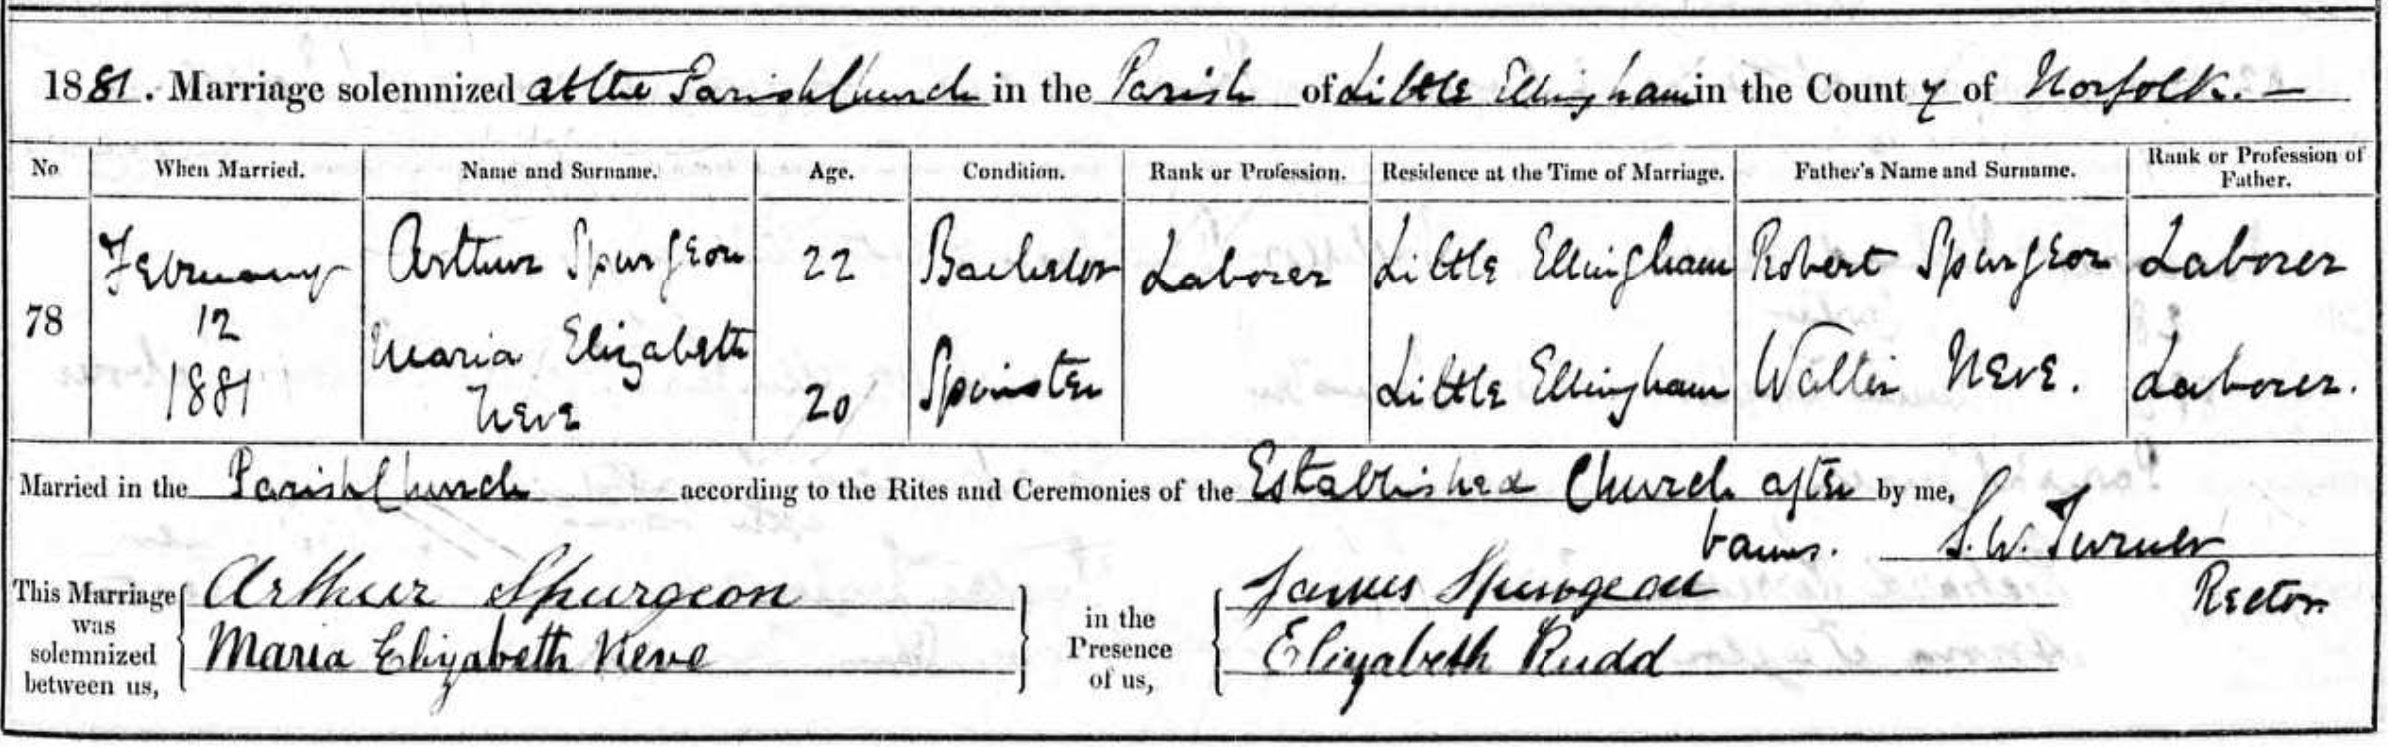 1881. Marriage solemnized at the Parish Church in the Parish of Little Ellingham in the County of Norfolk. —
No When Married. Name and Surname. Age. Condition. Rank or Profession. Residence at the Time of Marriage. Father's Name and Surname. Rank or Profession of Father.
78 February 12 1881 Arthur Spurgeon 22 Bachelor Laborer Little Ellingham Robert Spurgeon Laborer
Maria Elizabeth Neve 20 Spinster Little Ellingham Walter Neve. Laborer.
Married in the Parish Church according to the Rites and Ceremonies of the Established Church after by me,
banns. S. W. Turner
Rector
This Marriage was solemnized between us, Arthur Spurgeon in the Presence of us, James Spurgeon
Maria Elizabeth Neve Elizabeth Rudd